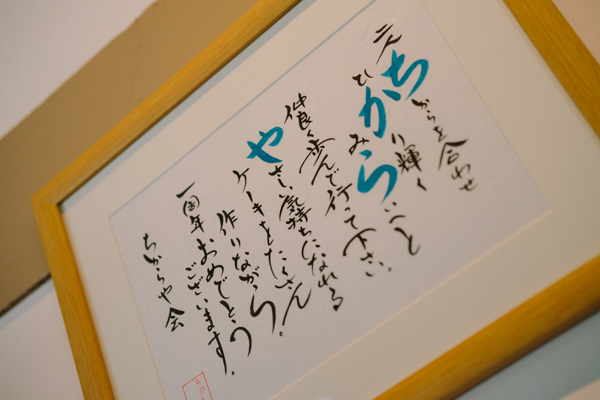 二人ちからを合わせ
ひかり輝く
みらいへと
仲良く歩んで行って下さい。
やさしい気持ちになれる
ケーキをたくさん!
作りながら
一周年おめでとう
ございます。
ちからや会